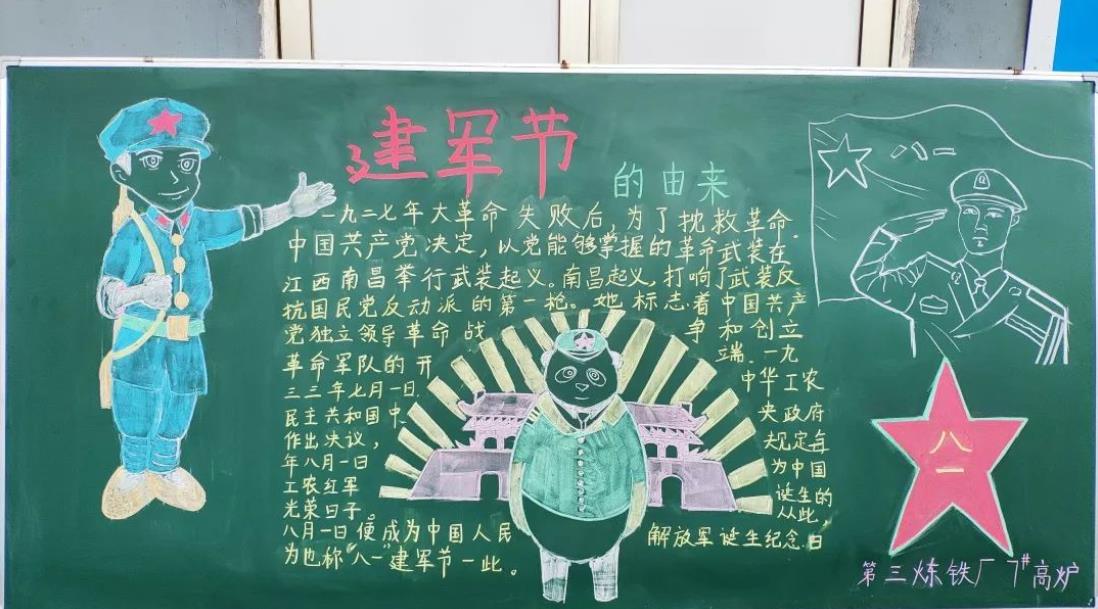 建军节
的由来
一九二七年大革命失败后，为了挽救革命.
中国共产党决定，以党能够掌握的革命武装在
江西南昌举行武装起义。南昌起义，打响了武装反
抗国民党反动派的第一枪。她标志着中国共产
党独立领导革命战争和创立
革命军队的开端.一九
三三年七月一日.中华工农
民主共和国中央政府
作出决议，规定每
年八月一日为中国
工农红军诞生的
光荣日子。从此，
八月一日便成为中国人民解放军诞生纪念日
为也称“八一”建军节一此。
八一
八一
第三炼铁厂7#高炉